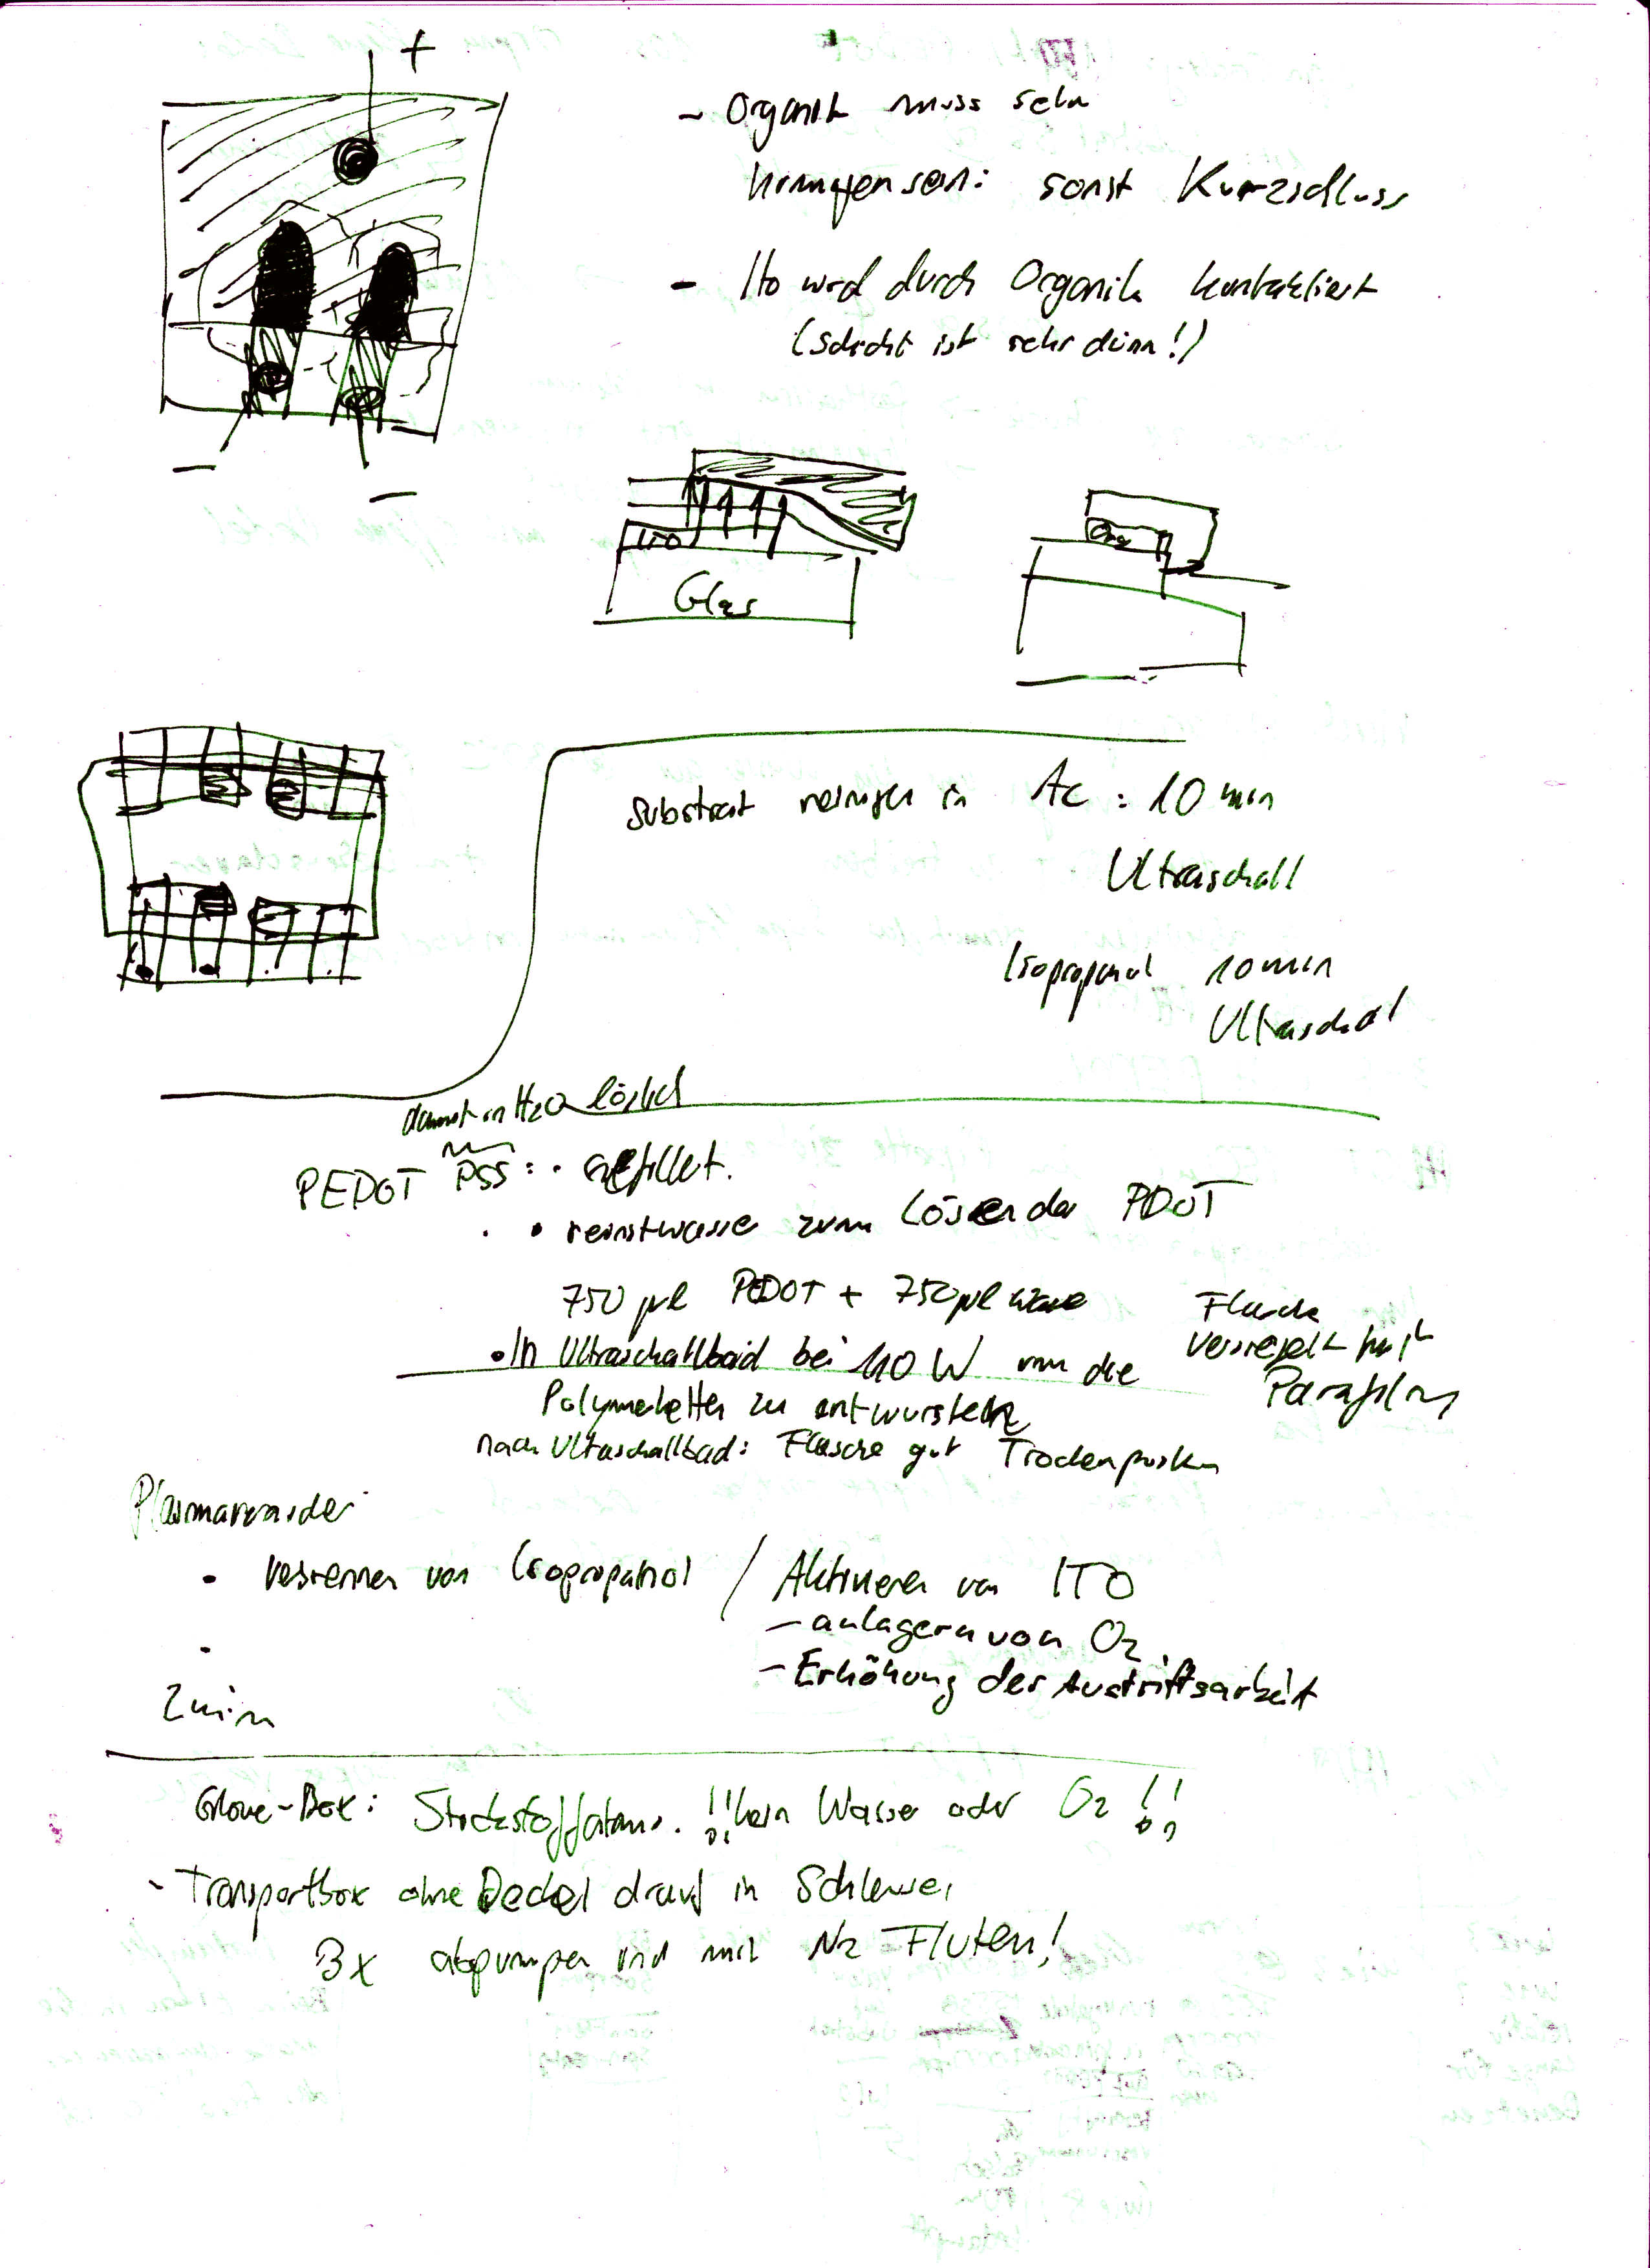 +
- Organik muss sehr
homogen sein: sonst Kurzschluss
- Ito wird durch Organik kontaktiert
(Schicht ist sehr dünn!)
-
-
ITO
Glas
Org
Substrat reinigen in Ac : 10 min
Ultraschall
Isopropanol 10 min
Ultraschall
damit in H2O löslich
PEDOT PSS : • gefiltert.
• reinstwasser zum Lösen der PDOT
750 µl PEDOT + 750 µl Wasser
Flasche
versiegelt mit
Parafilm
• In Ultraschallbad bei 110 W um die
Polymerketten zu entwursteln
nach Ultraschallbad: Flasche gut Trocken
• Verbrennen von Isopropanol / Aktivieren von ITO
- anlagern von O2
•
- Erhöhung der Austrittsarbeit
2 min
Glove-Box: !! kein Wasser oder O2 !!
- Transportbox ohne Deckel drauf in Schleuse,
3x abpumpen und mit N2 Fluten!